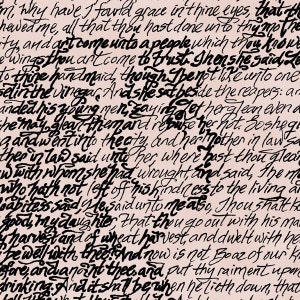 him, Why have I found grace in thine eyes, that
shewed me, all that thou hast done unto thy mother
ty, and art come unto a people, which thou knewest
e wings thou art come to trust. Then she said, Le
to thine handmaid, though I be not like unto one
sel in the vinegar. And she sat beside the reapers: and
anded his young men, saying, Let her glean even a
she may glean them, and rebuke her not. So she g
and went into the city: and her mother in law s
ther in law said unto her, Where hast thou glea
w with whom she had wrought, and said, The m
who hath not left off his kindness to the living a
oabitess said, He said unto me also, Thou shalt k
good, my daughter, that thou go out with his ma
y harvest and of wheat harvest; and dwelt with he
be well with thee? And now is not Boaz of our k
efore, and anoint thee, and put thy raiment upon
drinking. And it shall be, when he lieth down, that